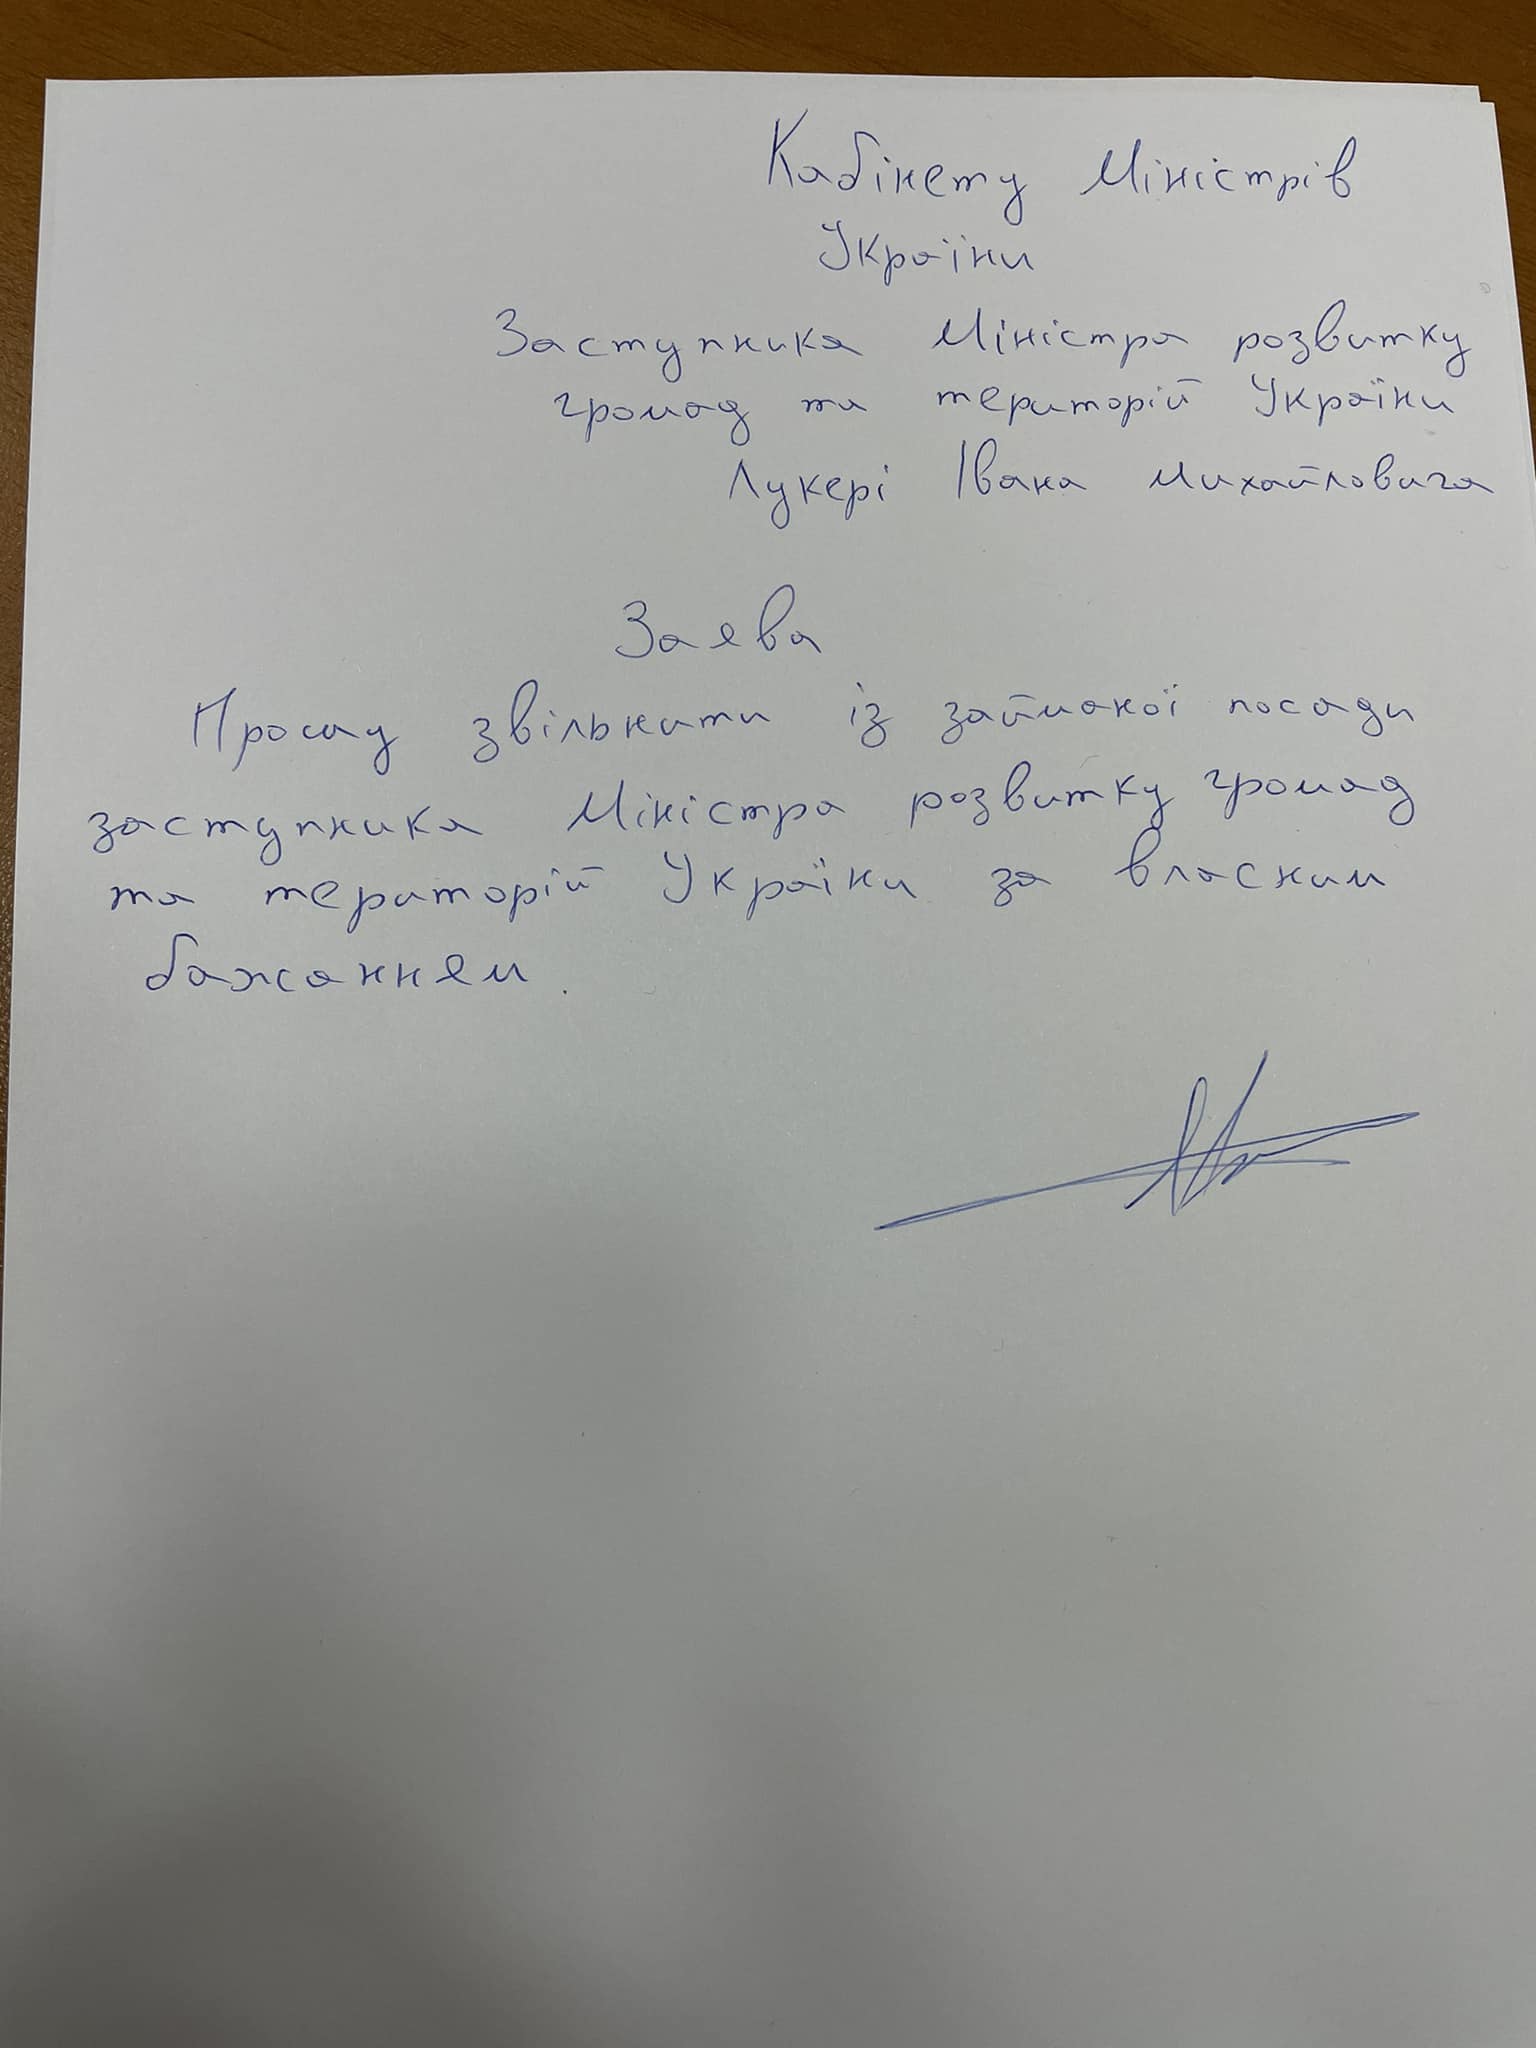 Кабінету Міністрів
України
Заступника Міністра розвитку
громад та територій України
Лукері Івана Михайловича
Заява
Прошу звільнити із займаної посади
заступника Міністра розвитку громад
та територій України за власним
бажанням.